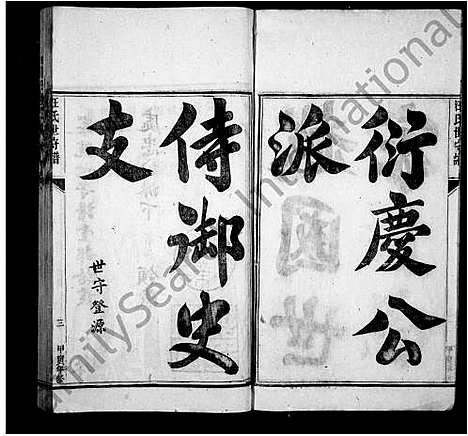 衍慶公
派
侍御史
支
世守登源
汪氏世守譜
三
甲寅年修
FamilySearch International